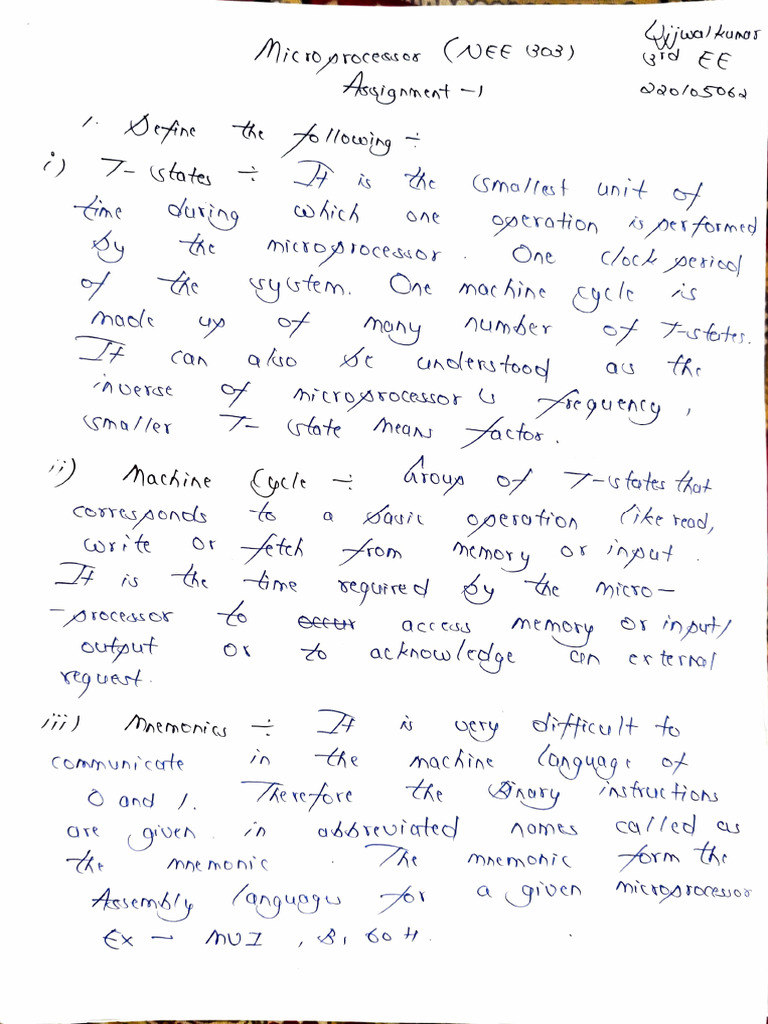 Ujjwal kumar
Microprocessor (NEE 303)
3rd EE
Assignment -1
220105062
1. Define the following ÷
i) T- states ÷ It is the smallest unit of
time during which one operation is performed
by the microprocessor. One clock period
of the system. One machine cycle is
made up of many number of T-states.
It can also be understood as the
inverse of microprocessor's frequency,
smaller T- state means factor.
ii) Machine Cycle ÷ Group of T-states that
corresponds to a basic operation like read,
write or fetch from memory or input.
It is the time required by the micro-
-processor to occur access memory or input/
output or to acknowledge an external
request.
iii) Mnemonics ÷ It is very difficult to
communicate in the machine language of
0 and 1. Therefore the Binary instructions
are given in abbreviated names called as
the mnemonic. The mnemonic form the
Assembly languages for a given microprocessor
Ex - MVI, B, 60H.